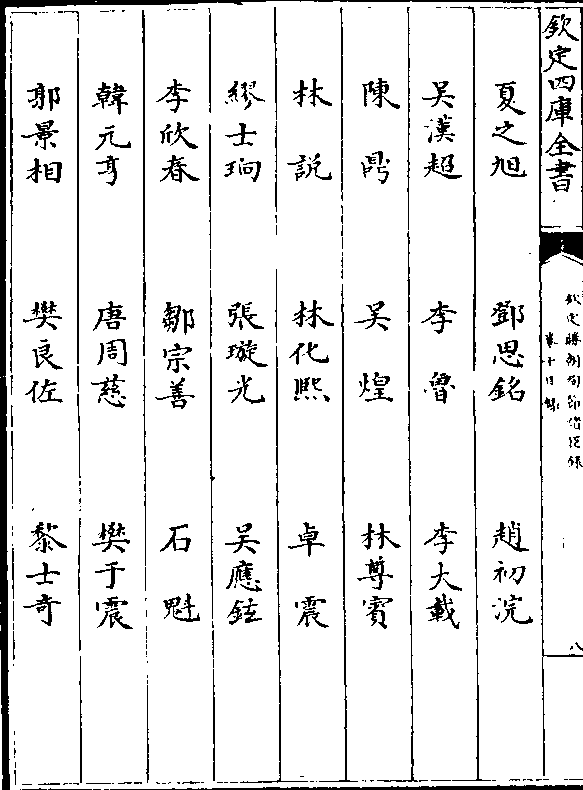 欽定四庫全書
欽定勝朝殉節諸臣錄
卷十目錄
八
夏之旭 鄧思銘 趙初浣
吳漢超 李魯 李大載
陳鼎 吳煌 林尊賓
林說 林化熙 卓震
繆士珦 張璇光 吳應鉉
李欣春 鄒宗善 石魁
韓元亨 唐周慈 樊于震
郭景相 樊良佐 黎士奇